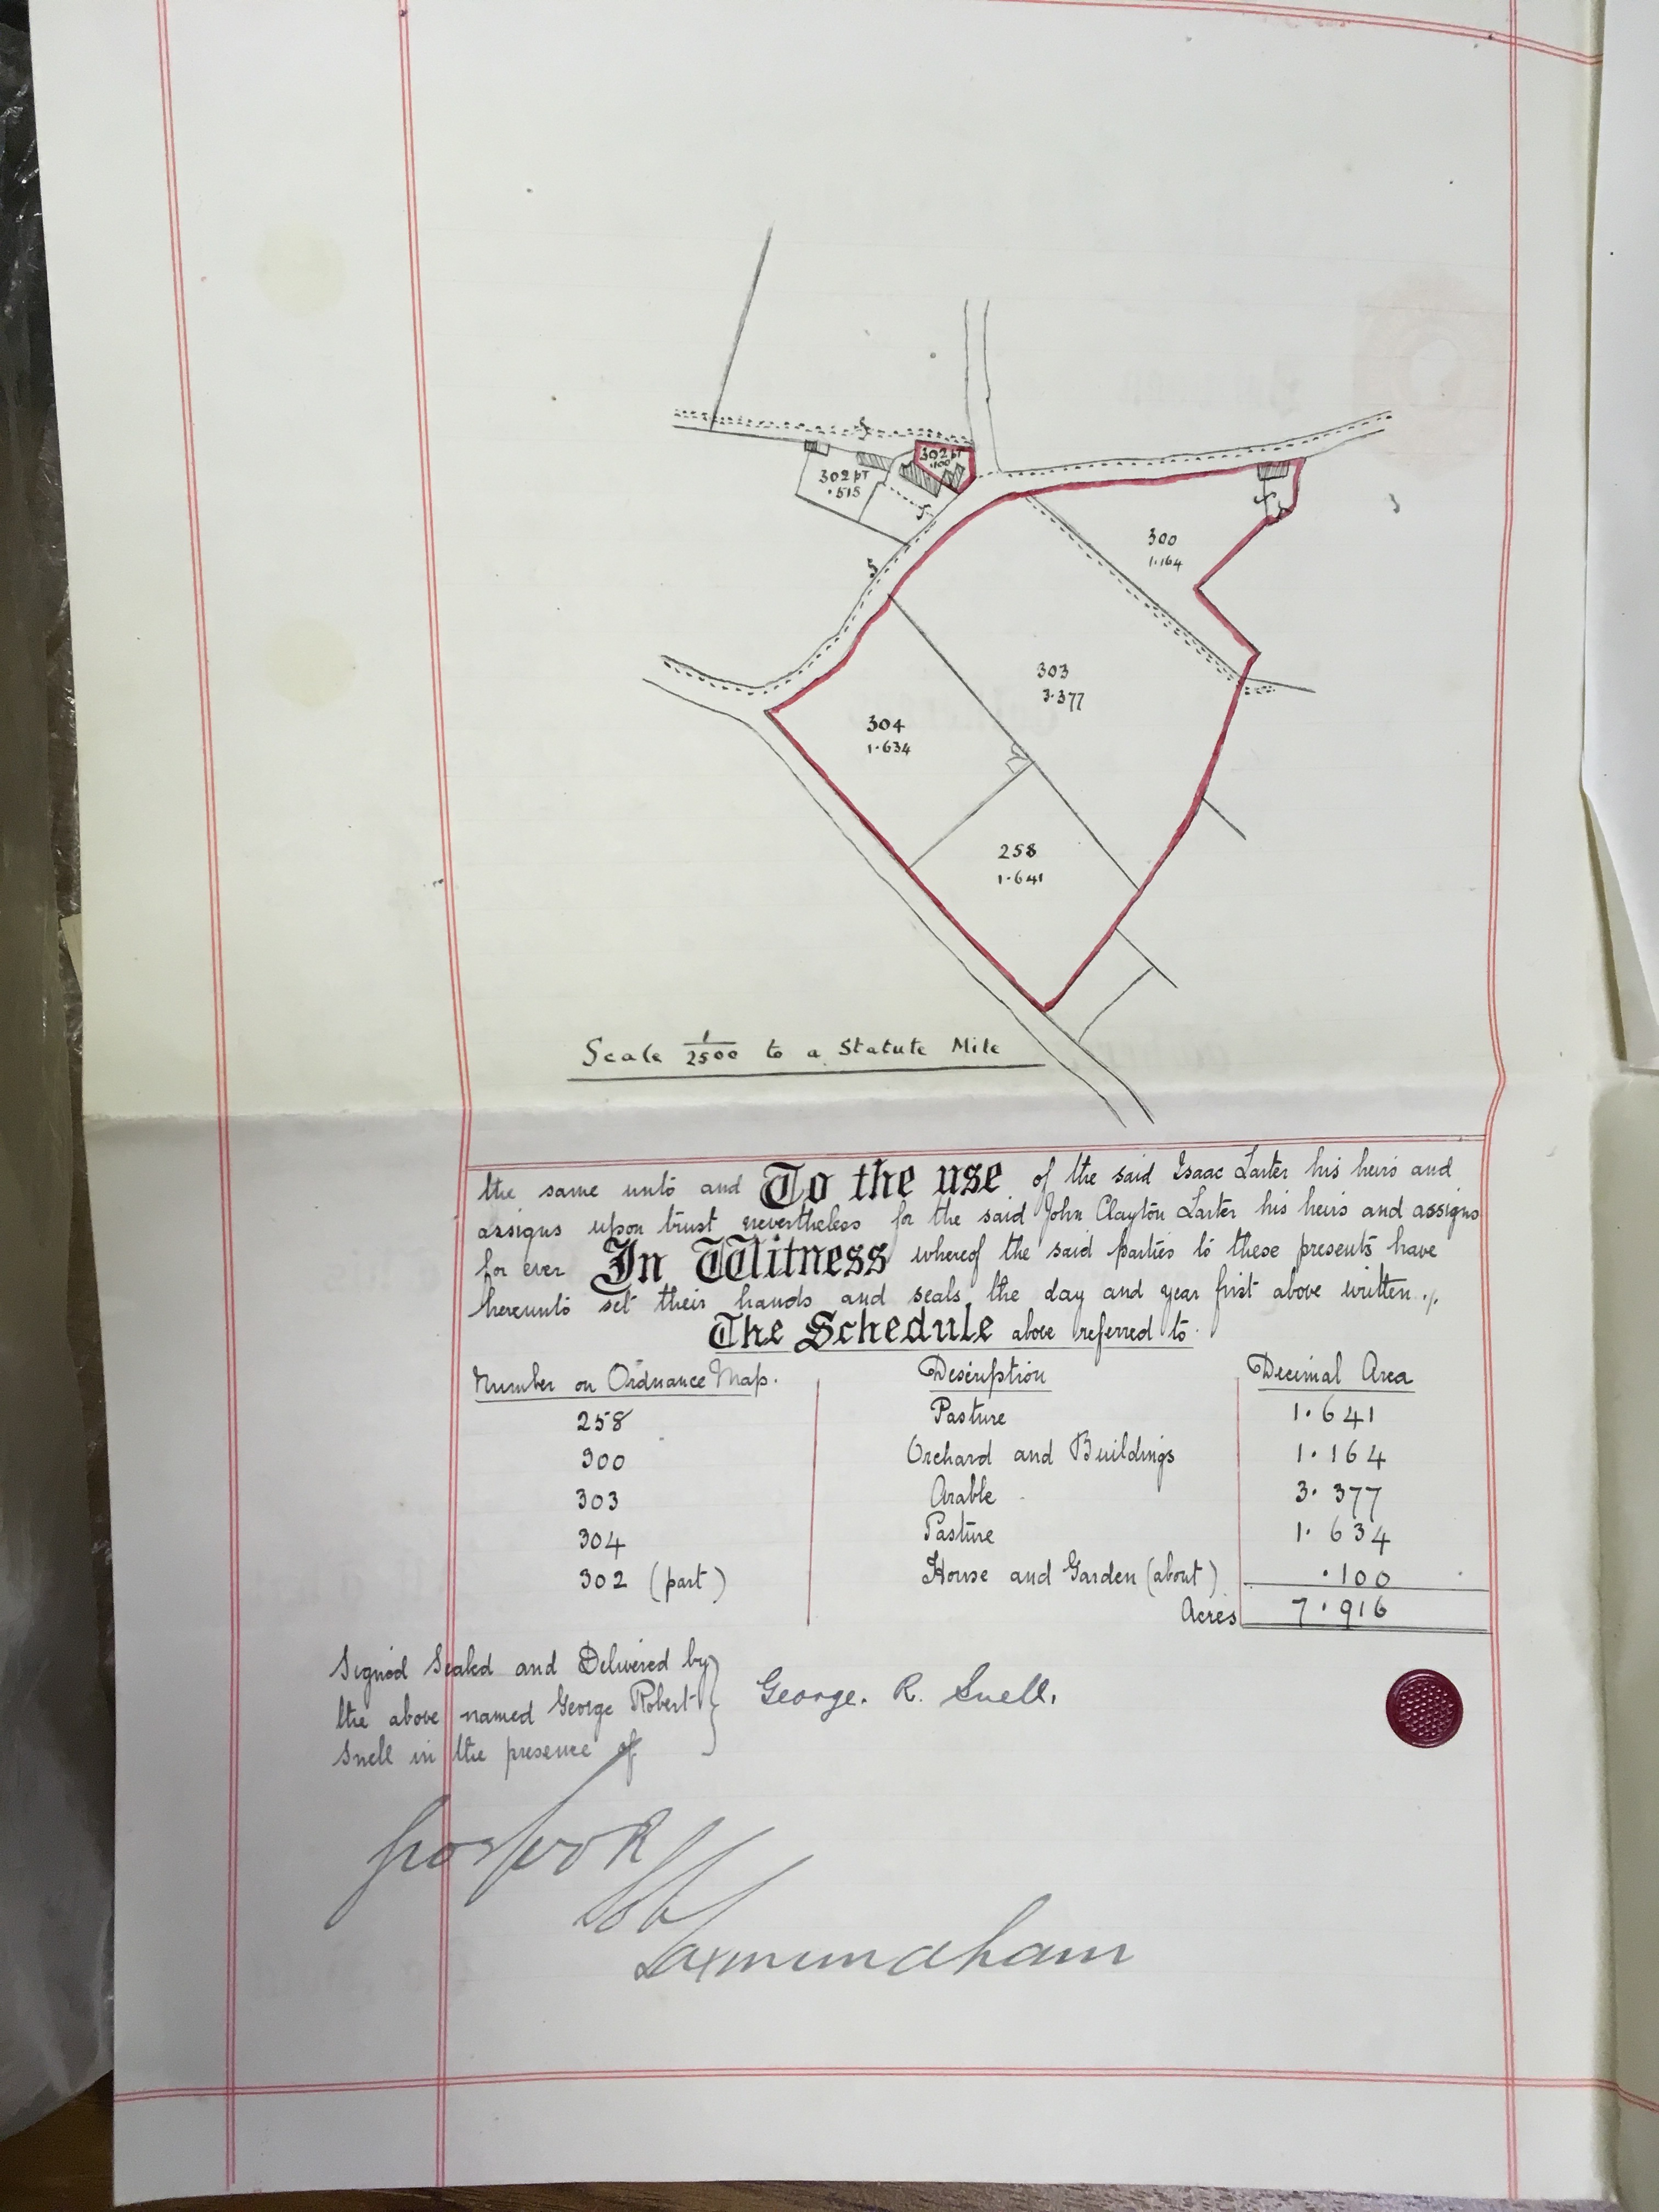 302 pt
.515
302 pt
.100
300
1.164
303
3.377
304
1.634
258
1.641
Scale 1/2500 to a Statute Mile
the same unto and To the use of the said Isaac Larter his heirs and
assigns upon trust nevertheless for the said John Clayton Larter his heirs and assigns
for ever In Witness whereof the said parties to these presents have
hereunto set their hands and seals the day and year first above written.
The Schedule above referred to.
Number on Ordnance Map. Description Decimal Area
258 Pasture 1.641
300 Orchard and Buildings 1.164
303 Arable 3.377
304 Pasture 1.634
302 (part) House and Garden (about) .100
Acres 7.916
Signed Sealed and Delivered by
the above named George Robert
Snell in the presence of
George. R. Snell.
Saxmundham